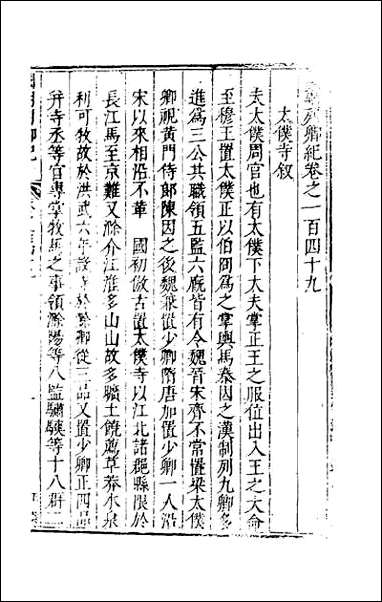 列卿紀卷之一百四十九
太僕寺敘
夫太僕周官也有太僕下大夫掌正王之服位出入王之大命
至穆王置太僕正以伯冏為之掌輿馬秦因之漢制列九卿多
進為三公共職領五監六廐皆有令魏晉宋齊不常置梁太僕
卿視黃門侍郎陳因之後魏兼置少卿隋唐加置少卿一人沿
宋以來相沿不革　國初倣古置太僕寺以江北諸郡縣限於
長江馬至京難又滁介江淮多山山故多曠土饒薦草莽水泉
利可牧故於洪武六年設寺於滁卿從三品又置少卿正四品
并寺丞等官專掌牧馬之事領滁陽等八監驌驥等十八群